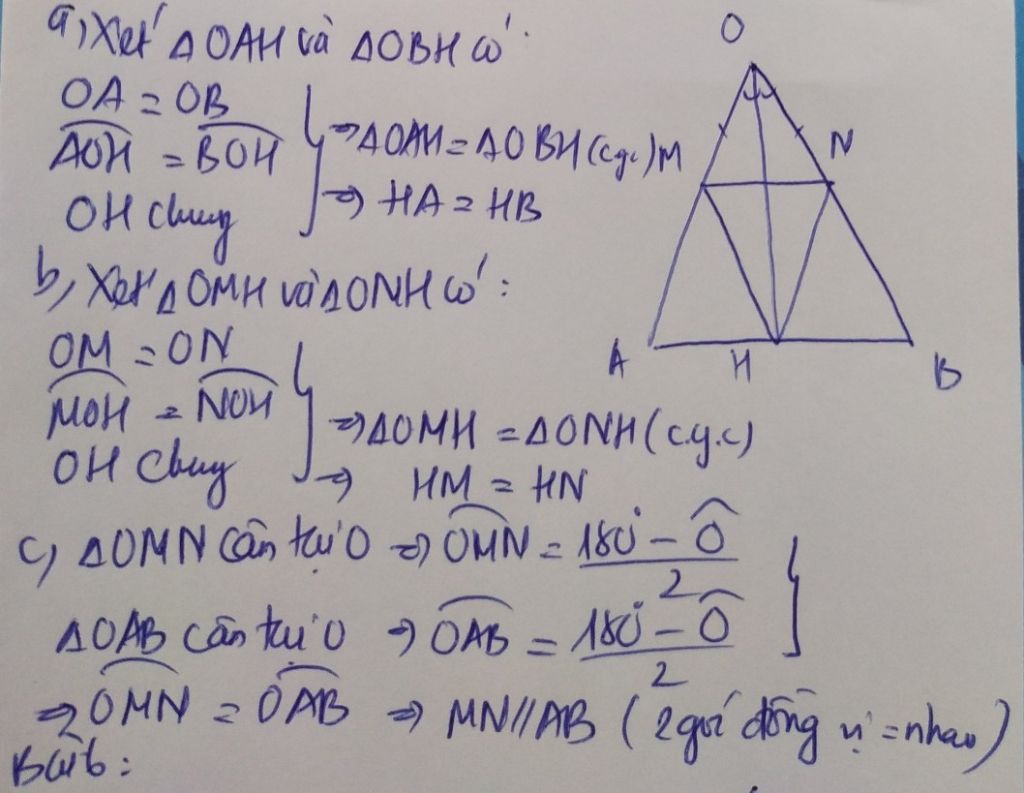 a, Xét ΔOAH và ΔOBH có:
OA = OB
AOH = BOH
OH chung
⇒ ΔOAH = ΔOBH (c.g.c)
⇒ HA = HB
b, Xét ΔOMH và ΔONH có:
OM = ON
MOH = NOH
OH chung
⇒ ΔOMH = ΔONH (c.g.c)
⇒ HM = HN
c, ΔOMN cân tại O ⇒ OMN = (180° - Ô)/2
ΔOAB cân tại O ⇒ OAB = (180° - Ô)/2
⇒ OMN = OAB ⇒ MN//AB (2 góí đồng vị = nhau)
Bài 6:
O
M
N
A
H
B